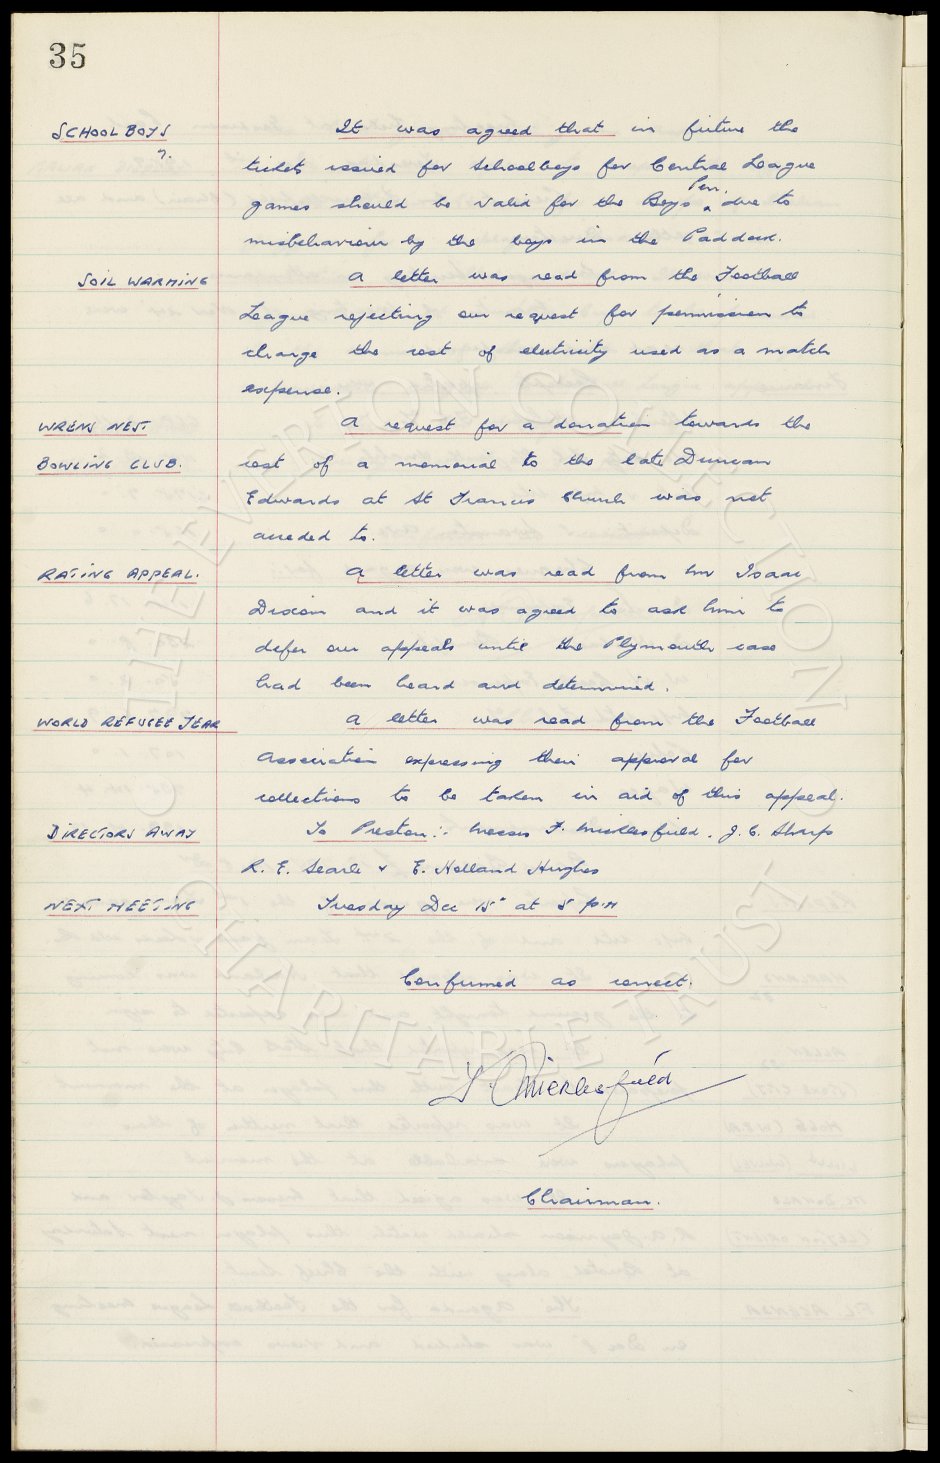 35
SCHOOL BOYS It was agreed that in future the
?. tickets issued for schoolboys for Central League
games should be valid for the Boys Pen. due to
misbehaviour by the boys in the Paddock.
SOIL WARMING A letter was read from the Football
League rejecting our request for permission to
charge the cost of electricity used as a match
expense.
WRENS NEST A request for a donation towards the
BOWLING CLUB. cost of a memorial to the late Duncan
Edwards at St Francis Church was not
acceded to.
RATING APPEAL. A letter was read from Mr Isaac
Dixon and it was agreed to ask him to
defer our appeals until the Plymouth case
had been heard and determined.
WORLD REFUGEE YEAR A letter was read from the Football
Association expressing their approval for
collections to be taken in aid of this appeal.
DIRECTORS AWAY To Preston:- Messrs F. Micklesfield, J. C. Sharp
R. E. Searle & E. Holland Hughes
NEXT MEETING Tuesday Dec 15" at 5 p.m
Confirmed as correct.
F. Micklesfield
Chairman.
THE EVERTON COLLECTION
CHARITABLE TRUST